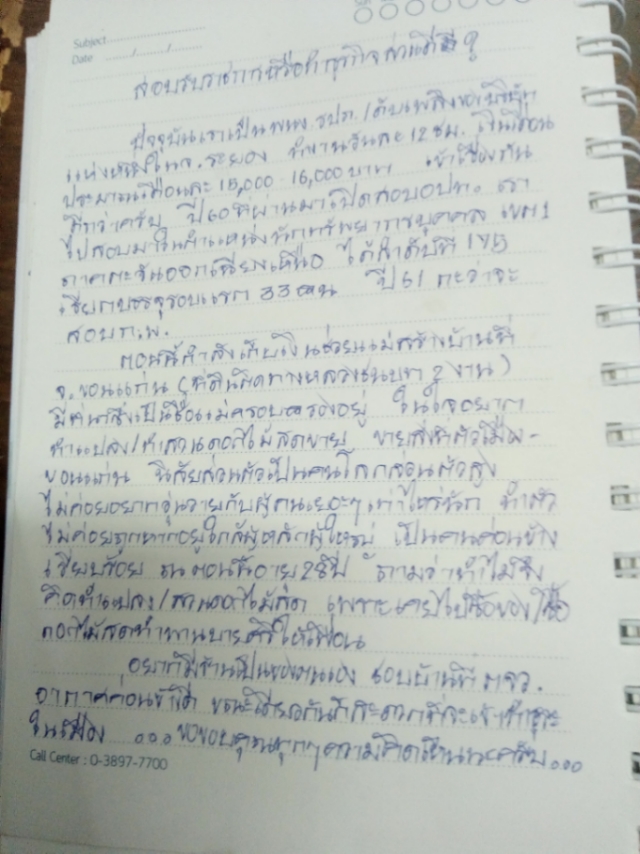 Subject
Date / /
สอบรับราชการหรือทำธุรกิจส่วนตัวดี ?
ปัจจุบันเราเป็นพนง. รปภ. / ดับเพลิงของบริษัท
แห่งหนึ่งในจ. ระยอง ทำงานวันละ 12 ชม. เงินเดือน
ประมาณเดือนละ 15,000 - 16,000 บาท เข้าเรื่องกัน
ดีกว่าครับ ปี 60 ที่ผ่านมาเปิดสอบอปท. เรา
ไปสอบมาในตำแหน่งนักทรัพยากรบุคคล เขต 1
ภาคตะวันออกเฉียงเหนือ ได้ลำดับที่
เรียกบรรจุรอบแรก 33 คน ปี 61 กะว่าจะ
สอบก.พ.
ตอนนี้กำลังเก็บเงินช่วยแม่สร้างบ้านที่
จ. ขอนแก่น (ที่ดินติดทางหลวงชนบท 2 งาน)
มีที่นาซึ่งเป็นชื่อแม่ครอบครองอยู่ ในใจอยาก
ทำแปลง/ทำสวนดอกไม้สดขาย ขายส่งในตัวเมือง-
ขอนแก่น นิสัยส่วนตัวเป็นคนโลกส่วนตัวสูง
ไม่ค่อยอยากวุ่นวายกับผู้คนเยอะๆ เท่าไหร่นัก ทำตัว
ไม่ค่อยถูกหากอยู่ใกล้ผู้หลักผู้ใหญ่ เป็นคนค่อนข้าง
เรียบร้อย ณ ตอนนี้อายุ 28 ปี ถามว่าทำไมถึง
คิดทำแปลง/สวนดอกไม้สด เพราะเคยไปซื้อของ
ดอกไม้สดทำพานบายศรีให้เพื่อน
อยากมีบ้านเป็นของตนเอง ชอบบ้านที่ ตจว.
อากาศค่อนข้างดี ขณะเดียวกันก็สะดวกที่จะเข้าทำธุระ
ในเมือง ... ขอขอบคุณทุกๆความคิดเห็นนะครับ...
Call Center : 0-3897-7700